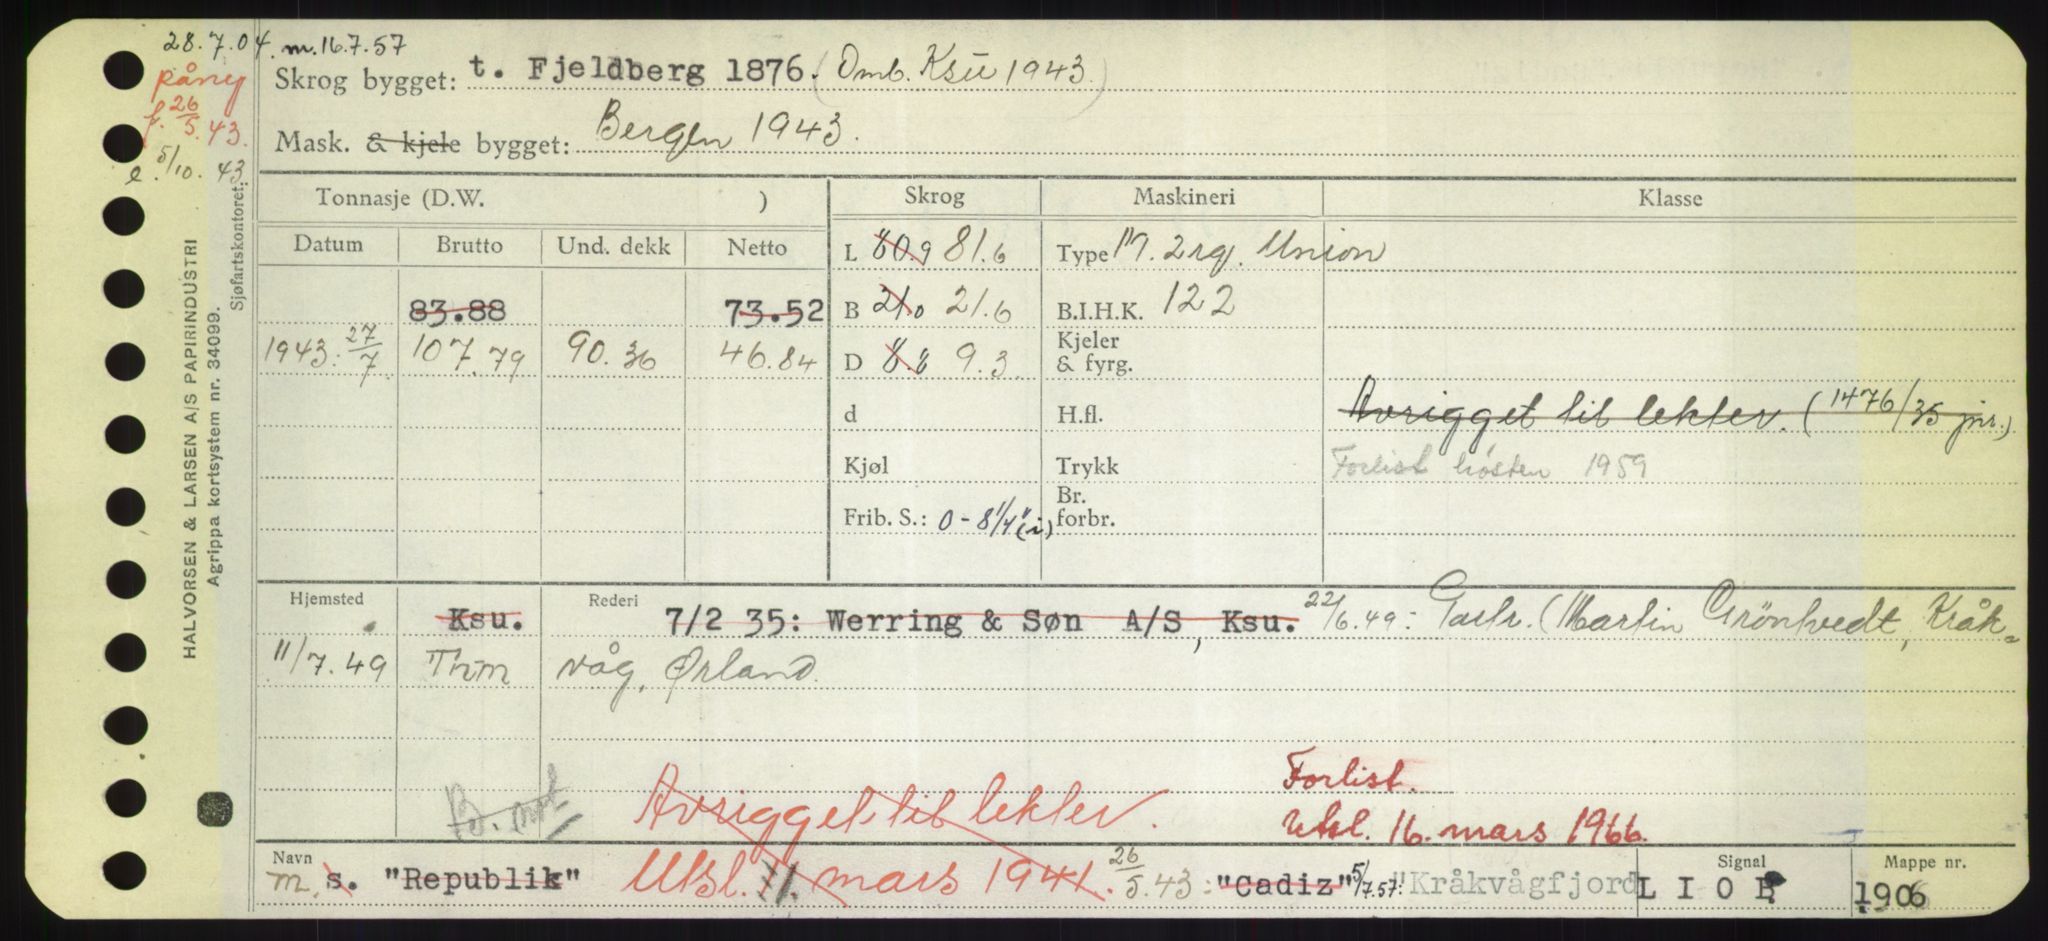 28.7.04. m. 16.7.57
påny
f. 26/5.43.
e. 5/10. 43
Skrog bygget: t. Fjeldberg 1876. (Omb. Ksu 1943)
Mask. & kjele bygget: Bergen 1943.
HALVORSEN & LARSEN A/S PAPIRINDUSTRI
Agrippa kortsystem nr. 34099.
Sjøfartskontoret.
Tonnasje (D.W. ) Skrog Maskineri Klasse
Datum Brutto Und. dekk Netto L 80.9 81.6 Type M. 2 rg. Union
83.88 73.52 B 21.0 21.6 B.I.H.K. 122
1943. 27/7 107.79 90.36 46.84 D 8.8 9.3. Kjeler & fyrg.
d H.fl. Avrigget til lekter. (1476/35 jnr.)
Kjøl Trykk Forlist høsten 1959
Frib. S.: 0-8 1/4" (i) Br. forbr.
Hjemsted Ksu. Rederi 7/2 35: Werring & Søn A/S, Ksu. 22/6.49: Partr. (Martin Grönhvedt, Kråk=
11/7.49 Thm våg, Ørland.
Avrigget til lekter. Forlist.
Utsl. 16. mars 1966.
Navn m. s. "Republik" Utsl. 11. mars 1941. 26/5.43: "Cadiz" 5/7.57: "Kråkvågfjord Signal L I O B Mappe nr. 1906